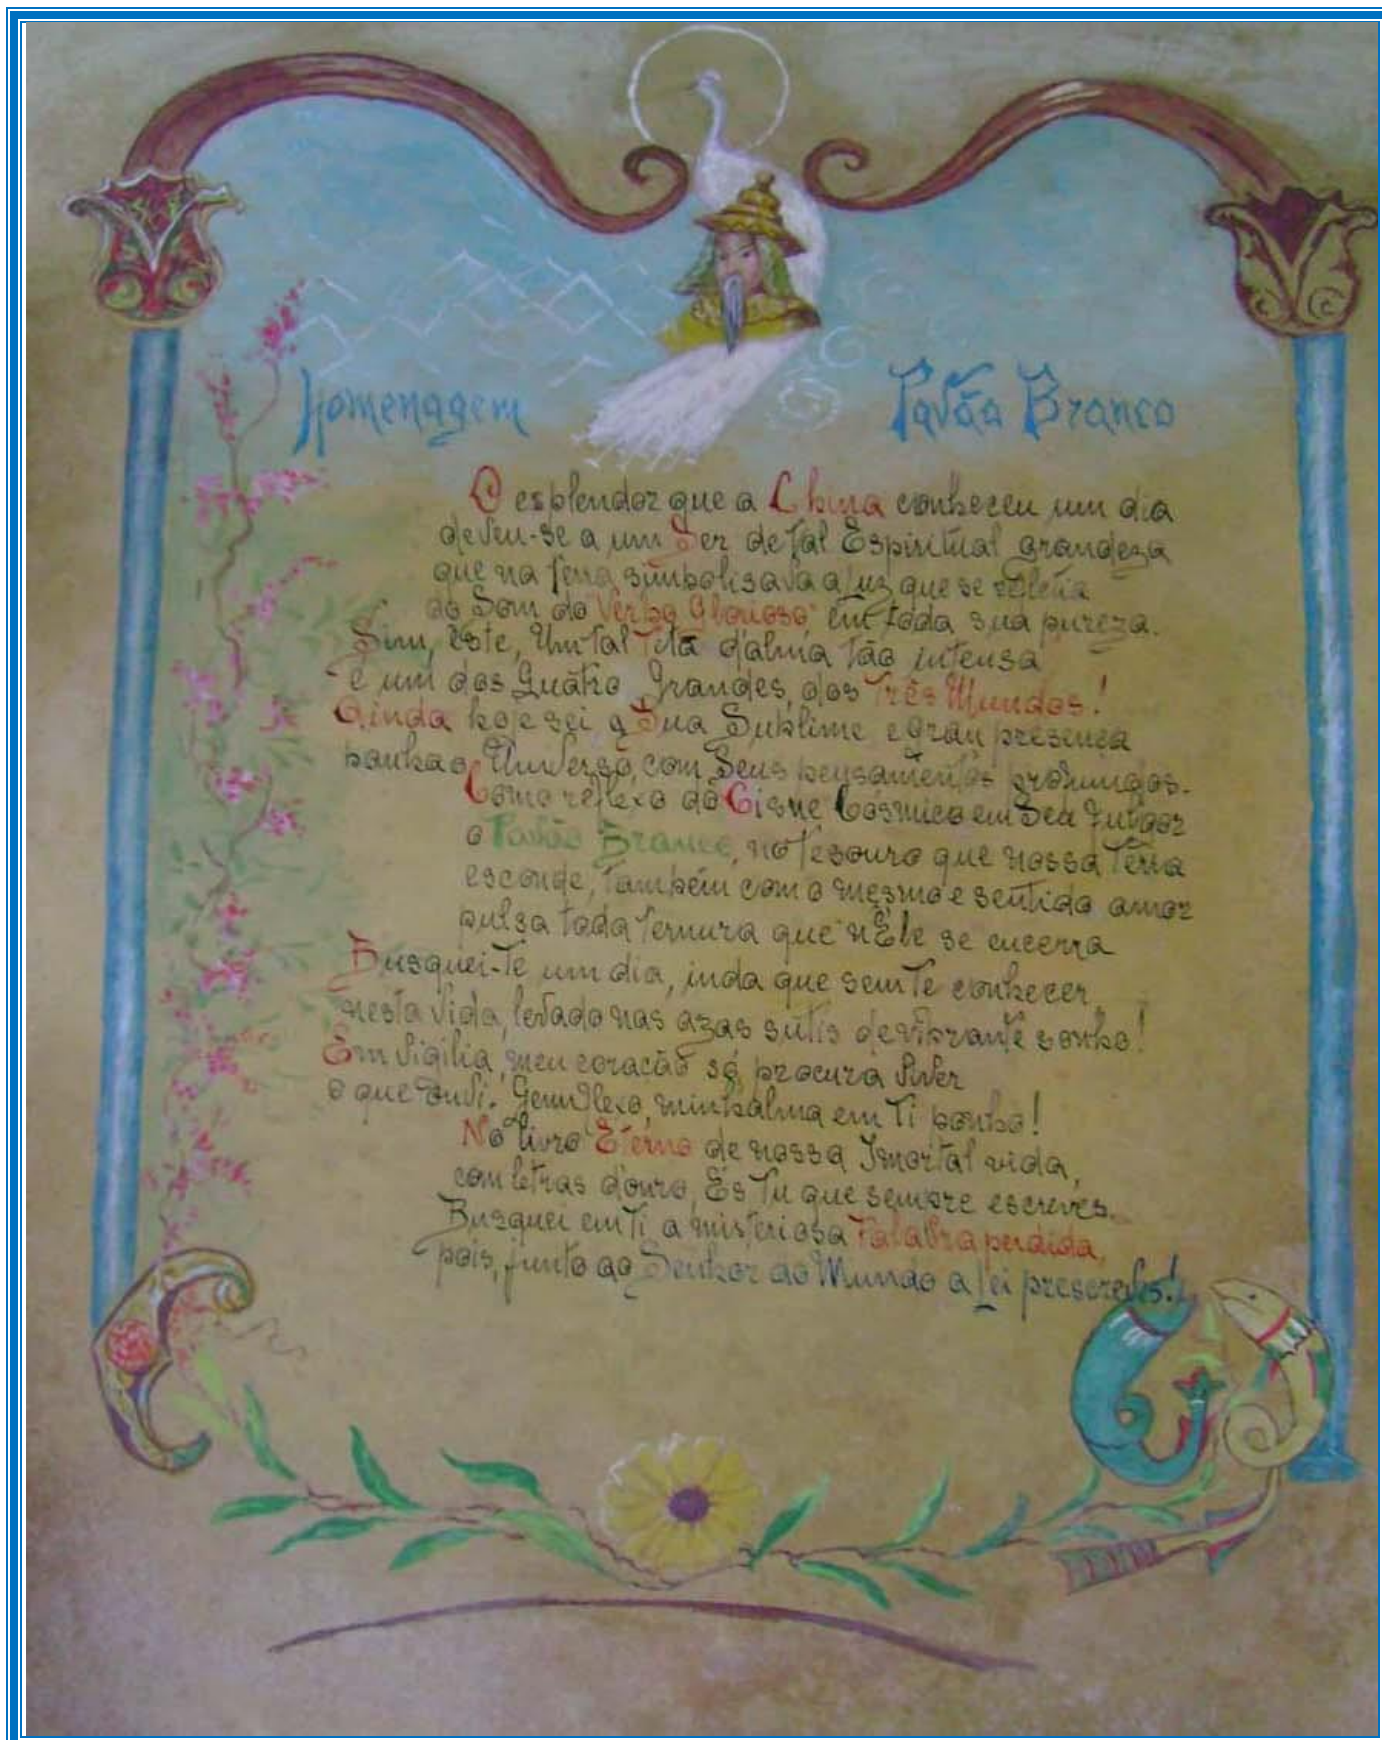 Homenagem Pavão Branco
O esplendor que a China conheceu um dia
deveu-se a um Ser de tal Espiritual grandeza
que na Terra simbolisava a Luz que se refletia
do Som do "Verbo Glorioso" em toda sua pureza.
Sim, este, Um tal Titã d'alma tão intensa
é um dos Quatro Grandes, dos Três Mundos!
Ainda hoje sei q Sua Sublime e gran presença
banha o Universo, com Seus pensamentos profundos.
Como reflexo do Cisne Cósmico em Seu fulgor
o Pavão Branco, no Tesouro que nossa Terra
esconde, também com o mesmo e sentido amor
pulsa toda Ternura que n'Ele se encerra
Busquei-Te um dia, inda que sem Te conhecer,
nesta vida, levado nas azas sutis de vibrante sonho!
Em vigilia, meu coração só procura viver
o que ouvi. Genuflexo, minhalma em Ti ponho!
No livro Eterno de nossa Imortal vida,
com letras d'ouro, És Tu que sempre escreves.
Busquei em Ti a misteriosa Palavra perdida,
pois, junto ao Senhor do Mundo a Lei prescreves!